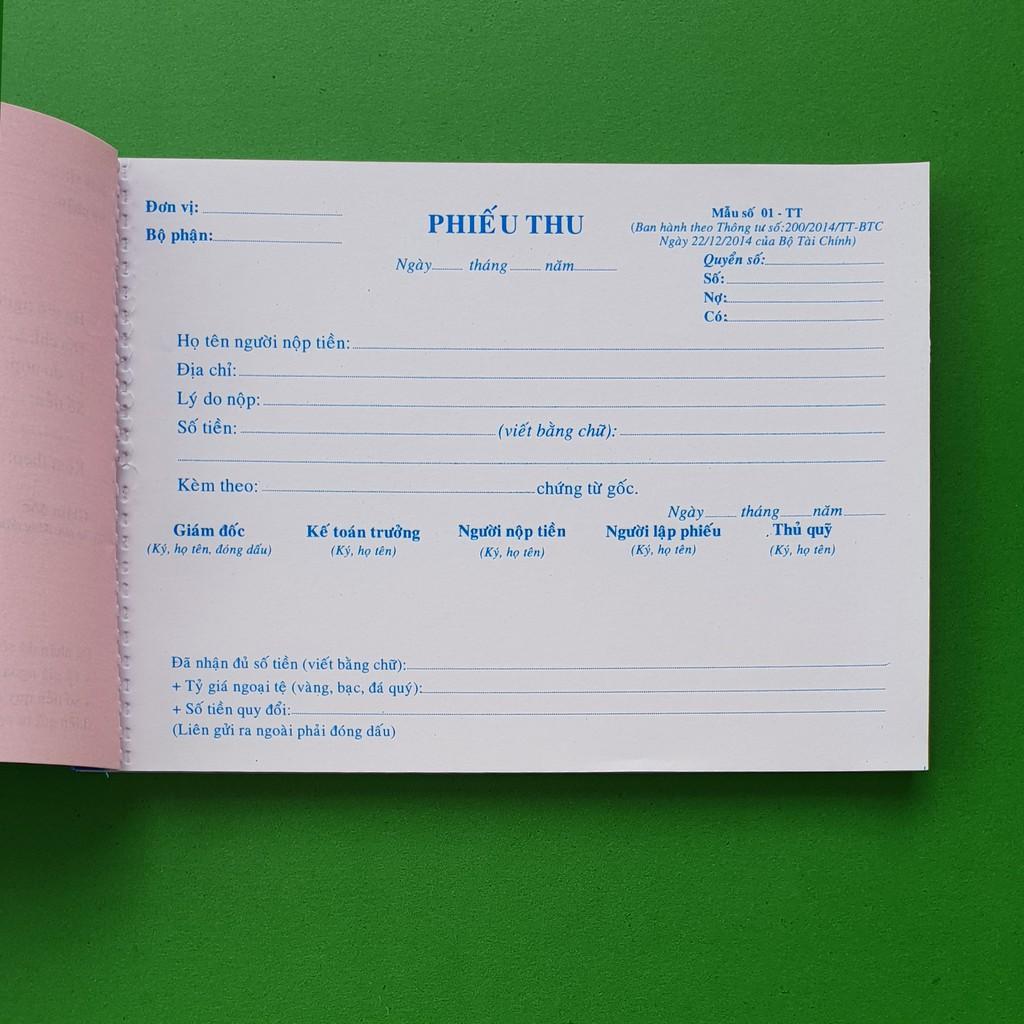 Đơn vị:
Bộ phận:
PHIẾU THU
Ngày tháng năm
Mẫu số 01 - TT
(Ban hành theo Thông tư số:200/2014/TT-BTC
Ngày 22/12/2014 của Bộ Tài Chính)
Quyển số:
Số:
Nợ:
Có:
Họ tên người nộp tiền:
Địa chỉ:
Lý do nộp:
Số tiền: (viết bằng chữ):
Kèm theo: chứng từ gốc.
Ngày tháng năm
Giám đốc Kế toán trưởng Người nộp tiền Người lập phiếu Thủ quỹ
(Ký, họ tên, đóng dấu) (Ký, họ tên) (Ký, họ tên) (Ký, họ tên) (Ký, họ tên)
Đã nhận đủ số tiền (viết bằng chữ):
+ Tỷ giá ngoại tệ (vàng, bạc, đá quý):
+ Số tiền quy đổi:
(Liên gửi ra ngoài phải đóng dấu)